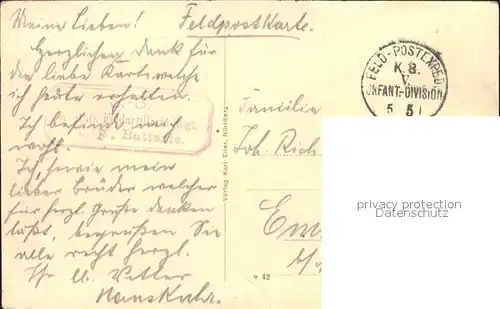 Meine Lieben! Feldpostkarte.
Herzlichen Dank für
die liebe Karte welche
ich heute erhalten.
Ich befinde mich
wohl.
Ich, sowie mein
lieber Bruder welcher
für herzl. Grüße danken
läßt, begrüßen Sie
alle recht herzl.
Ihr ll. Vetter
Batterie.
Verlag Karl Eiler, Nürnberg.
FELD-POSTEXPED.
K. B.
V.
INFANT-DIVISION
5 5
Familie
Joh. Rich
Em
42
privacy protection
Datenschutz